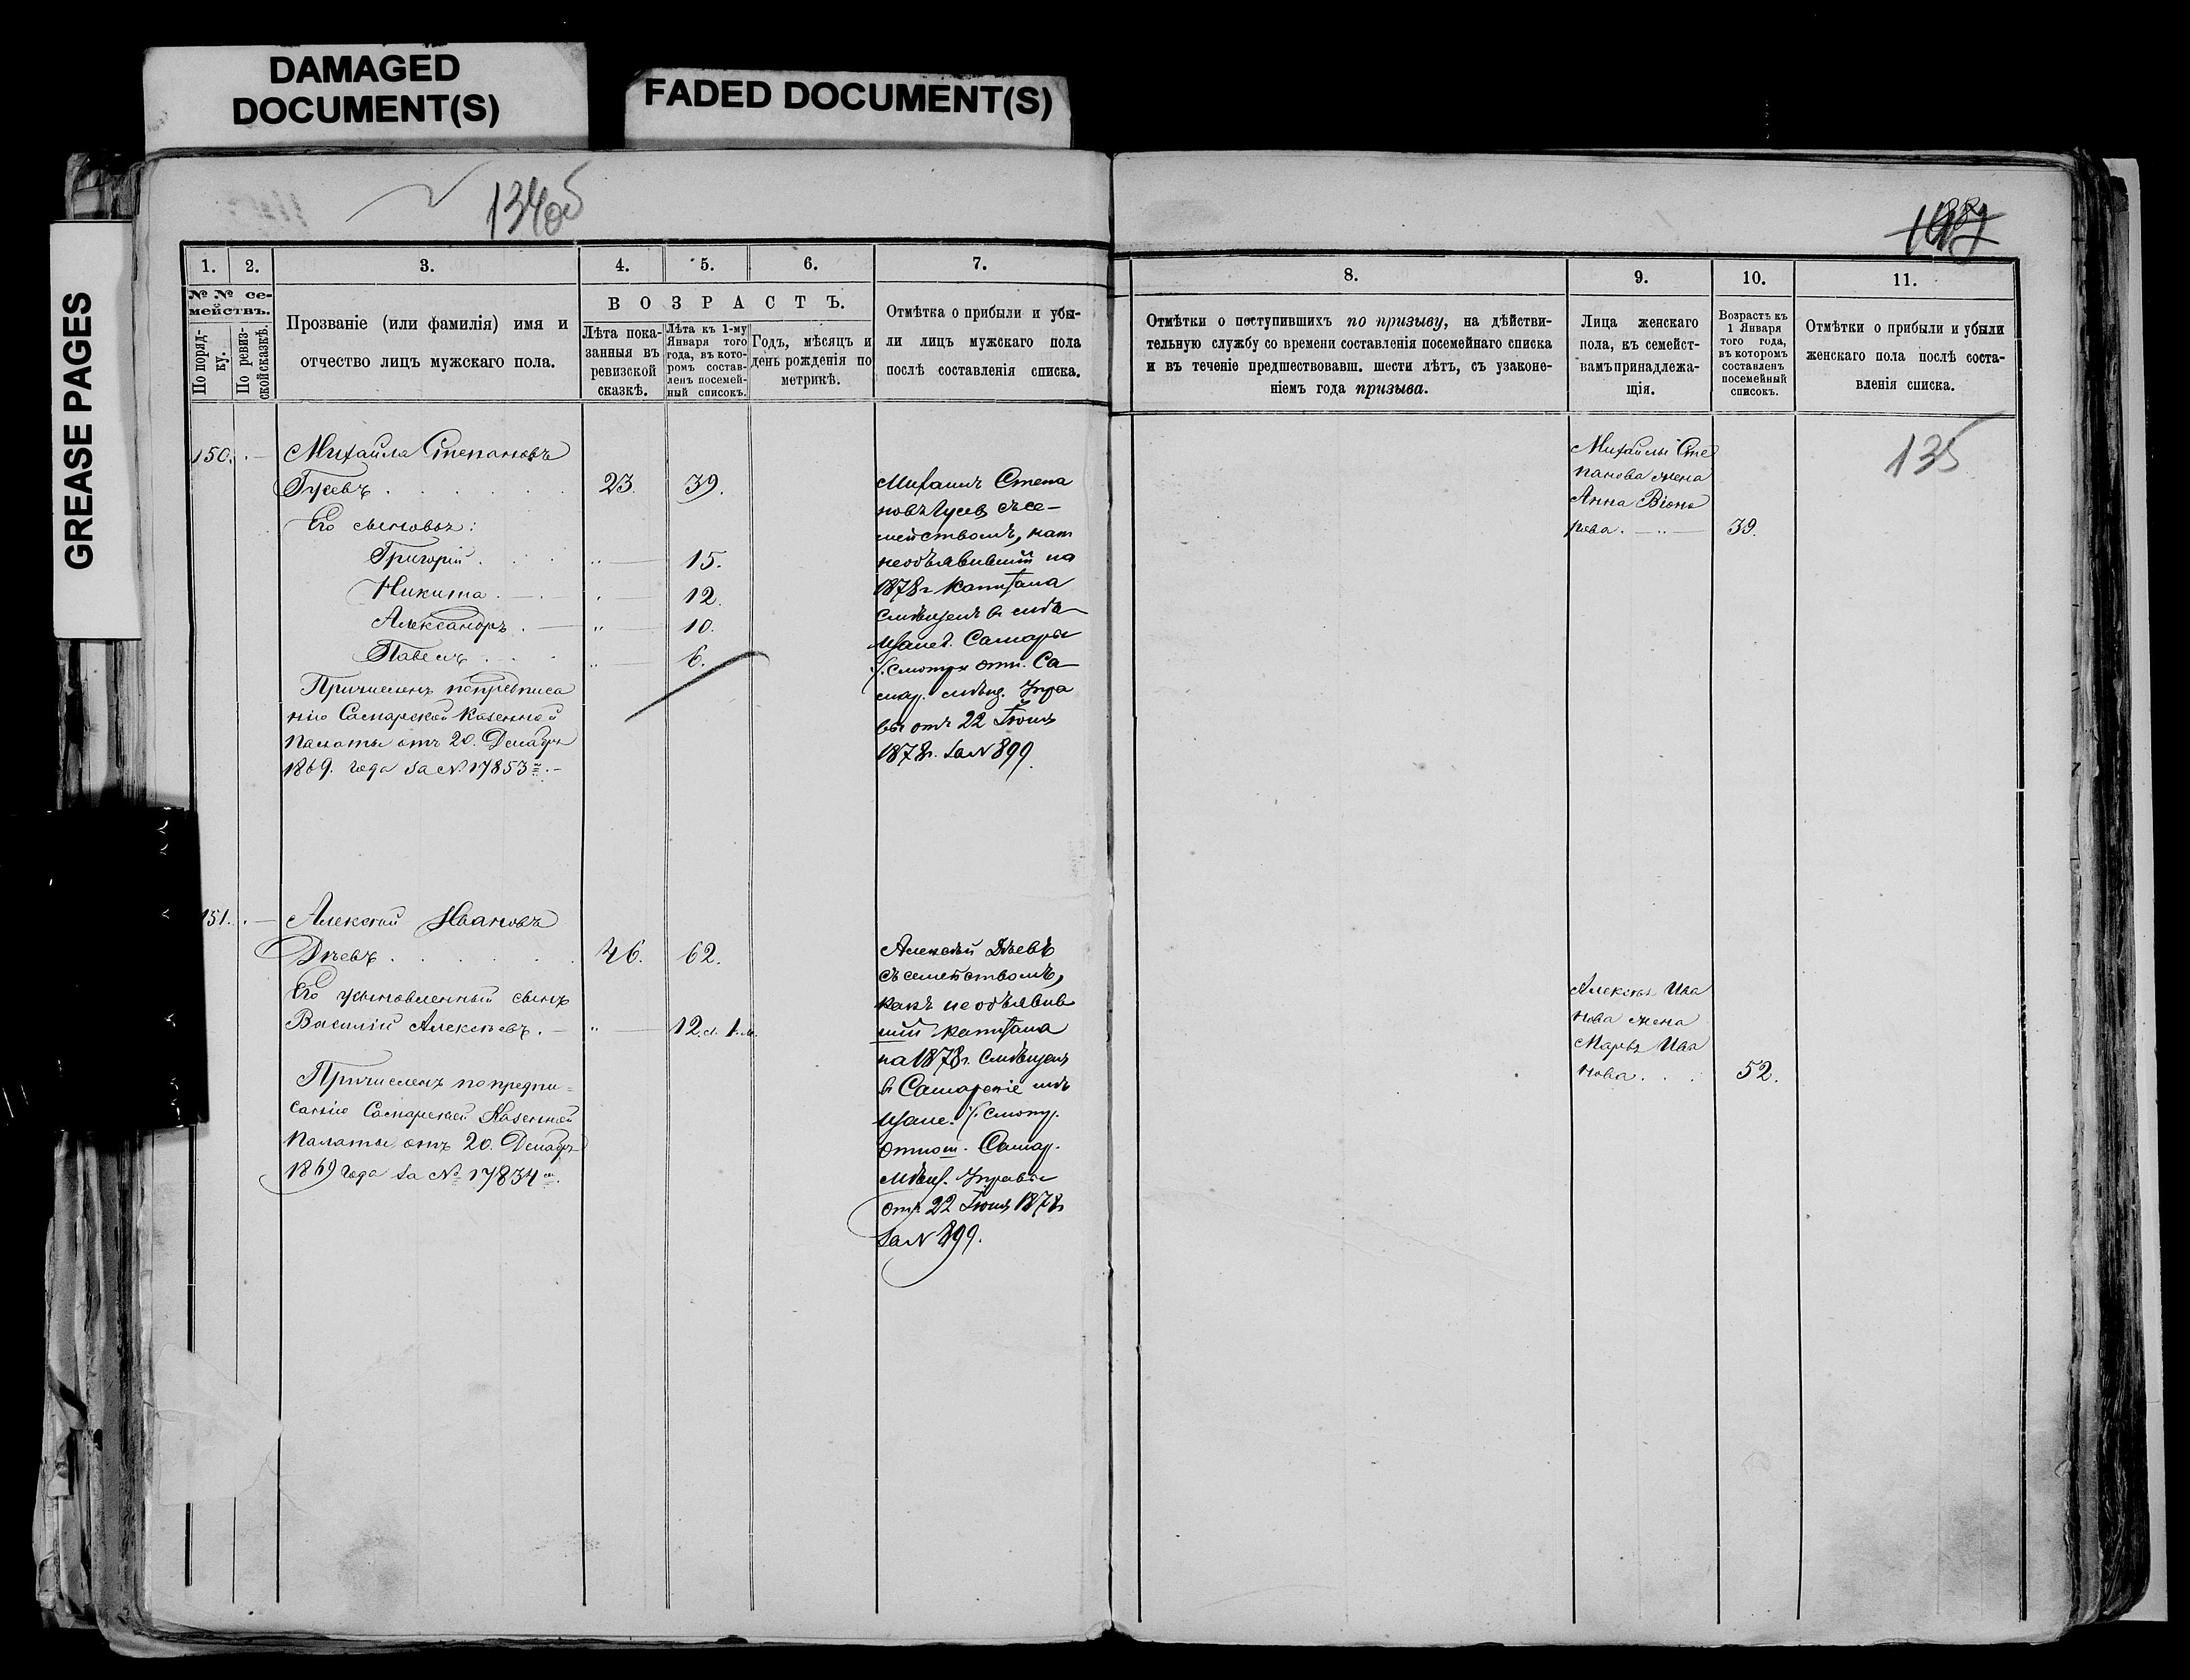 DAMAGED
DOCUMENT(S)
FADED DOCUMENT(S)
GREASE PAGES
134об
1.
2.
3.
4.
5.
6.
7.
№ № се-
мействъ.
По поряд-
ку.
По ревиз-
ской сказкѣ.
Прозваніе (или фамилія) имя и
отчество лицъ мужскаго пола.
ВОЗРАСТЪ.
Лѣта пока-
занныя въ
ревизской
сказкѣ.
Лѣта къ 1-му
Января того
года, въ кото-
ромъ состав-
ленъ посемей-
ный списокъ.
Годъ, мѣсяцъ и
день рожденія по
метрикѣ.
Отмѣтка о прибыли и убы-
ли лицъ мужскаго пола
послѣ составленія списка.
150. Михайла Степановъ
Гусевъ 23. 39.
Его сыновья:
Григорій 15.
Никита 12.
Александръ 10.
Павелъ 6.
Причисленъ по предписа
нію Самарской Казенной
Палаты отъ 20. Декабря
1869. года за №. 17853
Михаилъ Степа
новъ Гусев съ се-
мействомъ, как
необъявившій на
1878 г капитала
в мѣ
щане г. Самары
(Смотри отн. Са-
мар. мѣщ. Упра
вы отъ 22 Іюня
1878 г. за № 899
151. Алексѣй Ивановъ
Дѣевъ 46. 62.
Его усыновленный сынъ
Василій Алексѣевъ. 12. л. 1. м.
Причисленъ по предпи-
санію Самарской Казенной
Палаты отъ 20. Декабр
1869 года за № 17834
Алексѣй Дѣевъ
съ семействомъ,
какъ необъявив
шій капитала
на 1878 г.
в Самарскіе мѣ
щане. (Смотр.
отнош. Самар.
Мѣщ. Управы
отъ 22 Іюня 1878 г
за № 899.
8.
9.
10.
11.
Отмѣтки о поступившихъ по призыву, на дѣйстви-
тельную службу со времени составленія посемейнаго списка
и въ теченіе предшествовавш. шести лѣтъ, съ узаконе-
ніемъ года призыва.
Лица женскаго
пола, къ семейст-
вамъ принадлежа-
щія.
Возрастъ къ
1 Января
того года,
въ которомъ
составленъ
посемейный
списокъ.
Отмѣтки о прибыли и убыли
женскаго пола послѣ соста-
вленія списка.
135
Михайлы Сте
панова жена
Анна
39.
Алексѣя Ива
нова жена
Марья Ива
нова 52.